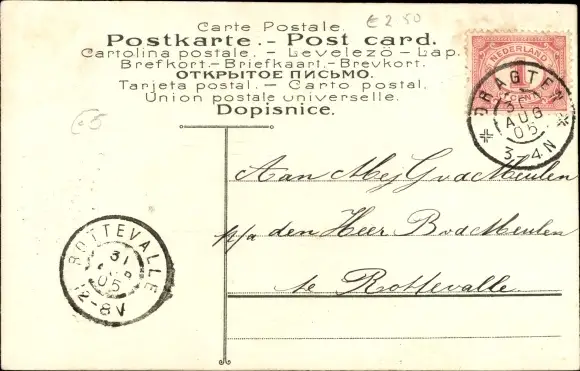 Carte Postale.
€ 2 50
Postkarte. - Post card.
Cartolina postale. - Levelező - Lap.
Brefkort. - Briefkaart. - Brevkort.
ОТКРЫТОЕ ПИСЬМО.
Tarjeta postal. - Carto postal.
Union postale universelle.
Dopisnice.
NEDERLAND
1
CENT
DRAGTEN
31
AUG
05
3-4N
€5
Aan Mej G v d Meulen
p/a den Heer B v d Meulen
te Rottevalle.
ROTTEVALLE
31
05
12-8V